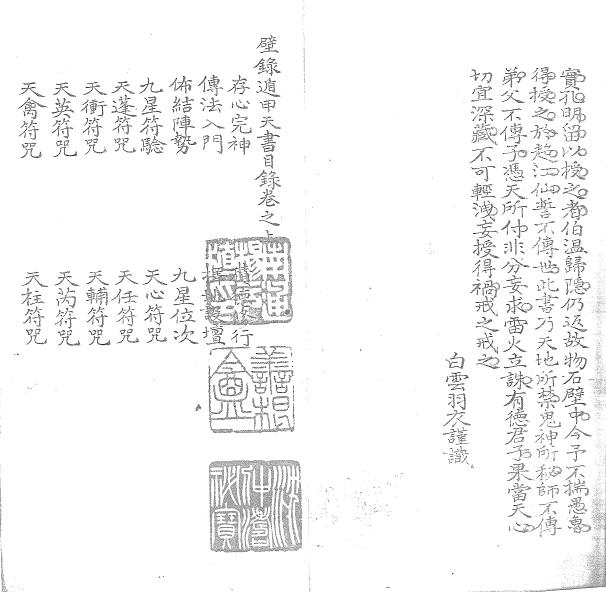 實孔明留以授之者伯溫歸隱仍返故物石壁中今予不揣愚魯
得授之於江仙誓不傳世此書乃天地所禁鬼神所秘師不傳
弟父不傳子憑天所付非分妄求雷火立誅有德君子果當天心
切宜深藏不可輕洩妄授得禍戒之戒之
白雲羽衣謹識
壁錄遁甲天書目錄卷之上
存心完神 積德修行
傳法入門 壇
佈結陣勢 九星位次
九星符驗 天心符咒
天蓬符咒 天任符咒
天衝符咒 天輔符咒
天英符咒 天芮符咒
天禽符咒 天柱符咒
沈仲濤秘寶